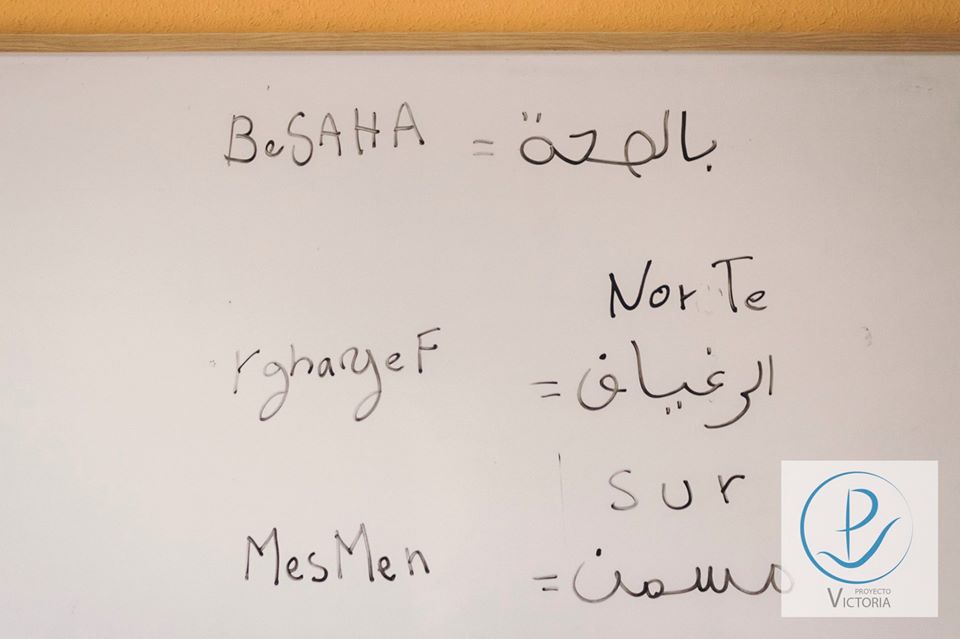 BeSAHA = بالصحة
NorTe
rghayeF = الرغياف
sur
MesMen = مسمن
PROYECTO
VICTORIA